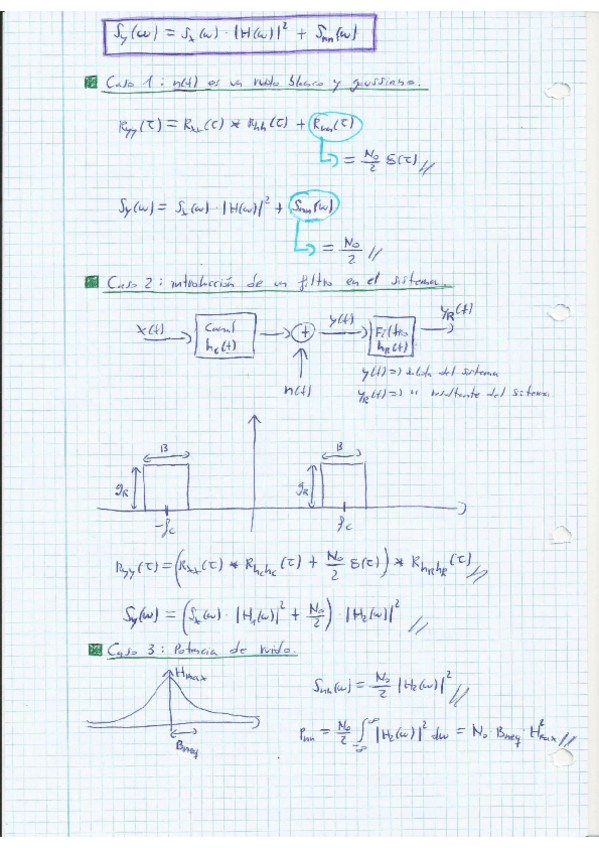 Sy(ω) = Sx(ω) · |H(ω)|² + Snn(ω)
Caso 1: n(t) es un ruido blanco y gaussiano.
Ryy(τ) = Rxx(τ) * Rhh(τ) + Rnn(τ)
= N₀/2 δ(τ) //
Sy(ω) = Sx(ω) · |H(ω)|² + Snn(ω)
= N₀/2 //
Caso 2: introducción de un filtro en el sistema.
x(t) Canal hc(t) + y(t) Filtro hR(t) yR(t)
n(t)
y(t) => salida del sistema
yR(t) => " resultante del sistema
B B
gR gR
-fc fc
Ryy(τ) = (Rxx(τ) * Rhchc(τ) + N₀/2 δ(τ)) * RhRhR(τ) //
Sy(ω) = (Sx(ω) · |H₁(ω)|² + N₀/2) · |H₂(ω)|² //
Caso 3: Potencia de ruido.
Hmax
Bneq
Snn(ω) = N₀/2 |H₂(ω)|² //
Pnn = N₀/2 ∫_{-∞}^{∞} |H₂(ω)|² dω = N₀ Bneq H²max //